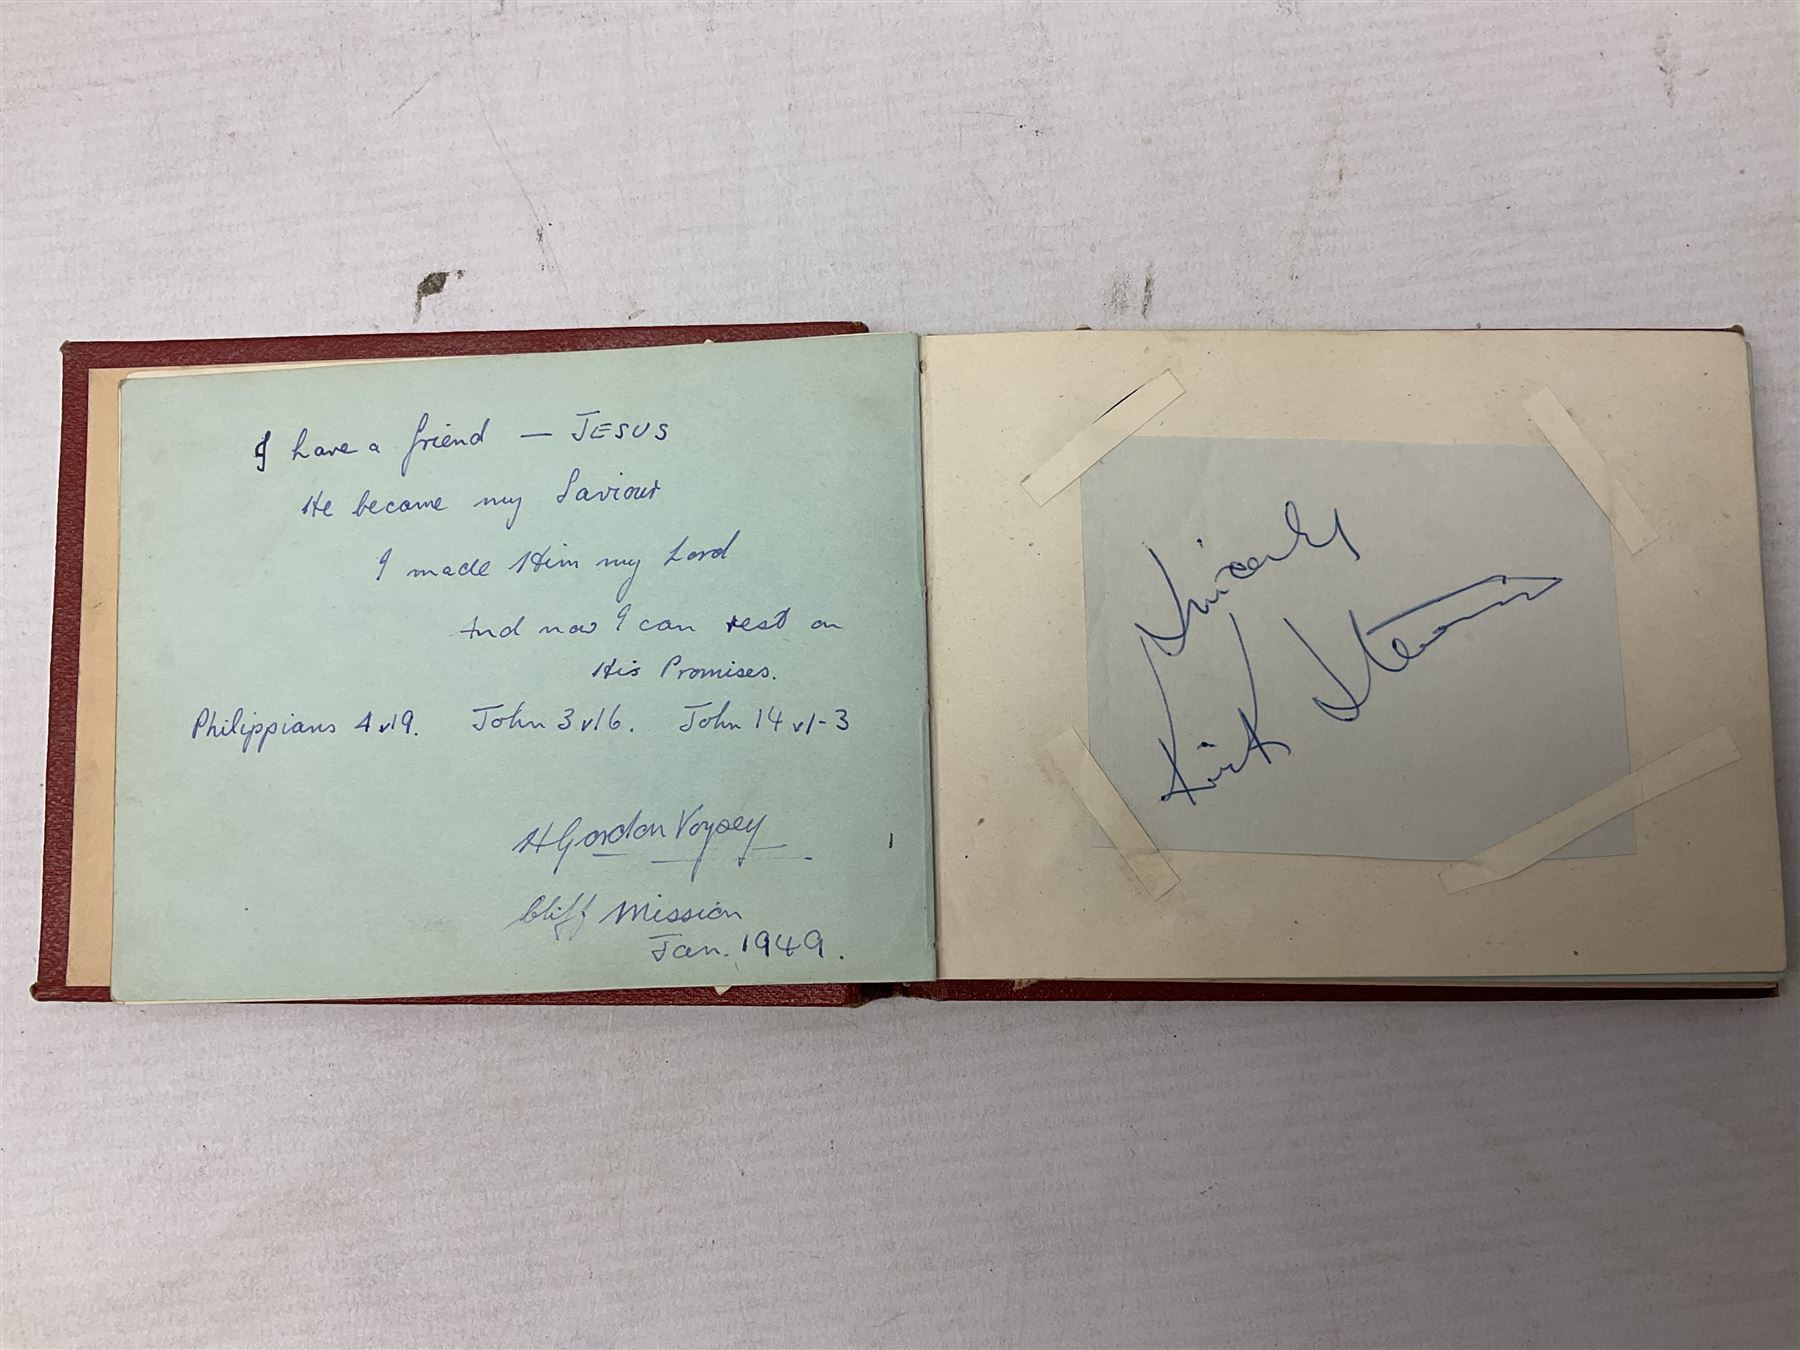 I have a friend — JESUS
He became my Saviour
I made Him my Lord
And now I can rest on
His Promises.
Philippians 4 v19. John 3 v16. John 14 v1-3
H Gordon Voysey
Cliff Mission
Jan. 1949.
Sincerely
Kirk Stevens